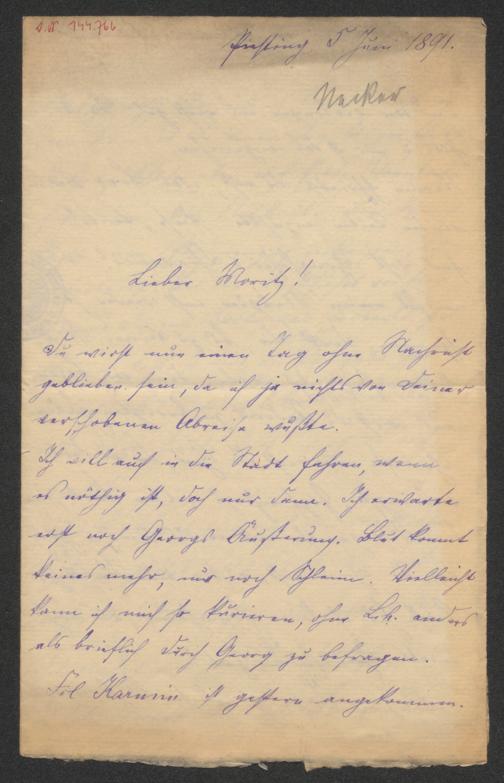 I.N. 144.766
Piesting 5 Juni 1891.
Necker
Lieber Moritz!
Du wirst nun einen Tag ohne Nachricht
geblieben sein, da ich ja nichts von Deiner
verschobenen Abreise wußte.
Ich will auch in die Stadt fahren, wenn
es nöthig ist, doch nur dann. Ich erwarte
erst noch Georgs Äußerung. Blut kommt
keines mehr, nur noch Schleim. Vielleicht
kann ich mich so kurieren, ohne anders
als brieflich durch Georg zu befragen.
Frl Karmin ist gestern angekommen.